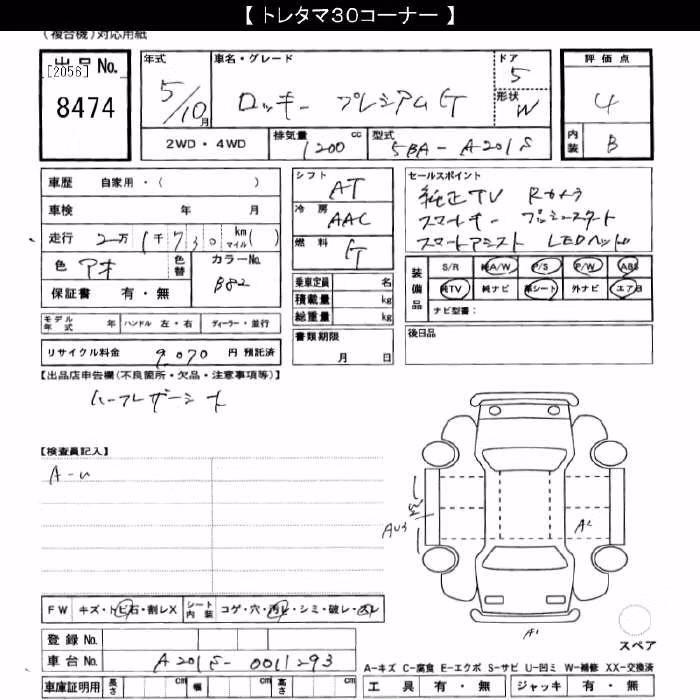 【 トレタマ30コーナー 】
(複合機)対応用紙
出品No.
[2056]
8474
年式
5/10月
車名・グレード
ロッキー プレミアムG
ドア
5
形状
W
評価点
4
内装
B
2WD・4WD
排気量
1200 cc
型式
5BA-A201S
車歴 自家用・( )
車検 年 月
走行 2万1千730 km マイル( )
色 アオ
色替
カラーNo.
B82
保証書 有・無
シフト
AT
冷房
AAC
燃料
G
乗車定員 名
積載量 kg
総重量 kg
セールスポイント
純正TV Rカメラ
スマートキー プッシュスタート
スマートアシスト LEDヘッド
装備品
S/R 純A/W P/S P/W ABS
純TV 純ナビ 革シート 外ナビ エアB
ナビ型番:
モデル年式 年
ハンドル 左・右
ディーラー・並行
書類期限
月 日
後日品
リサイクル料金 9,070 円 預託済
【出品店申告欄(不良箇所・欠品・注意事項等)】
ハーフレザーシート
【検査員記入】
A-U
AU3
A2
A1
FW キズ・トビ石・割レX
シート内装 コゲ・穴・汚レ・シミ・破レ・凹レ
登録No.
車台No. A201S-0011293
車庫証明用 長さ cm 幅 cm 高さ cm
スペア
A-キズ C-腐食 E-エクボ S-サビ U-凹ミ W-補修 XX-交換済
工具 有・無 ジャッキ 有・無